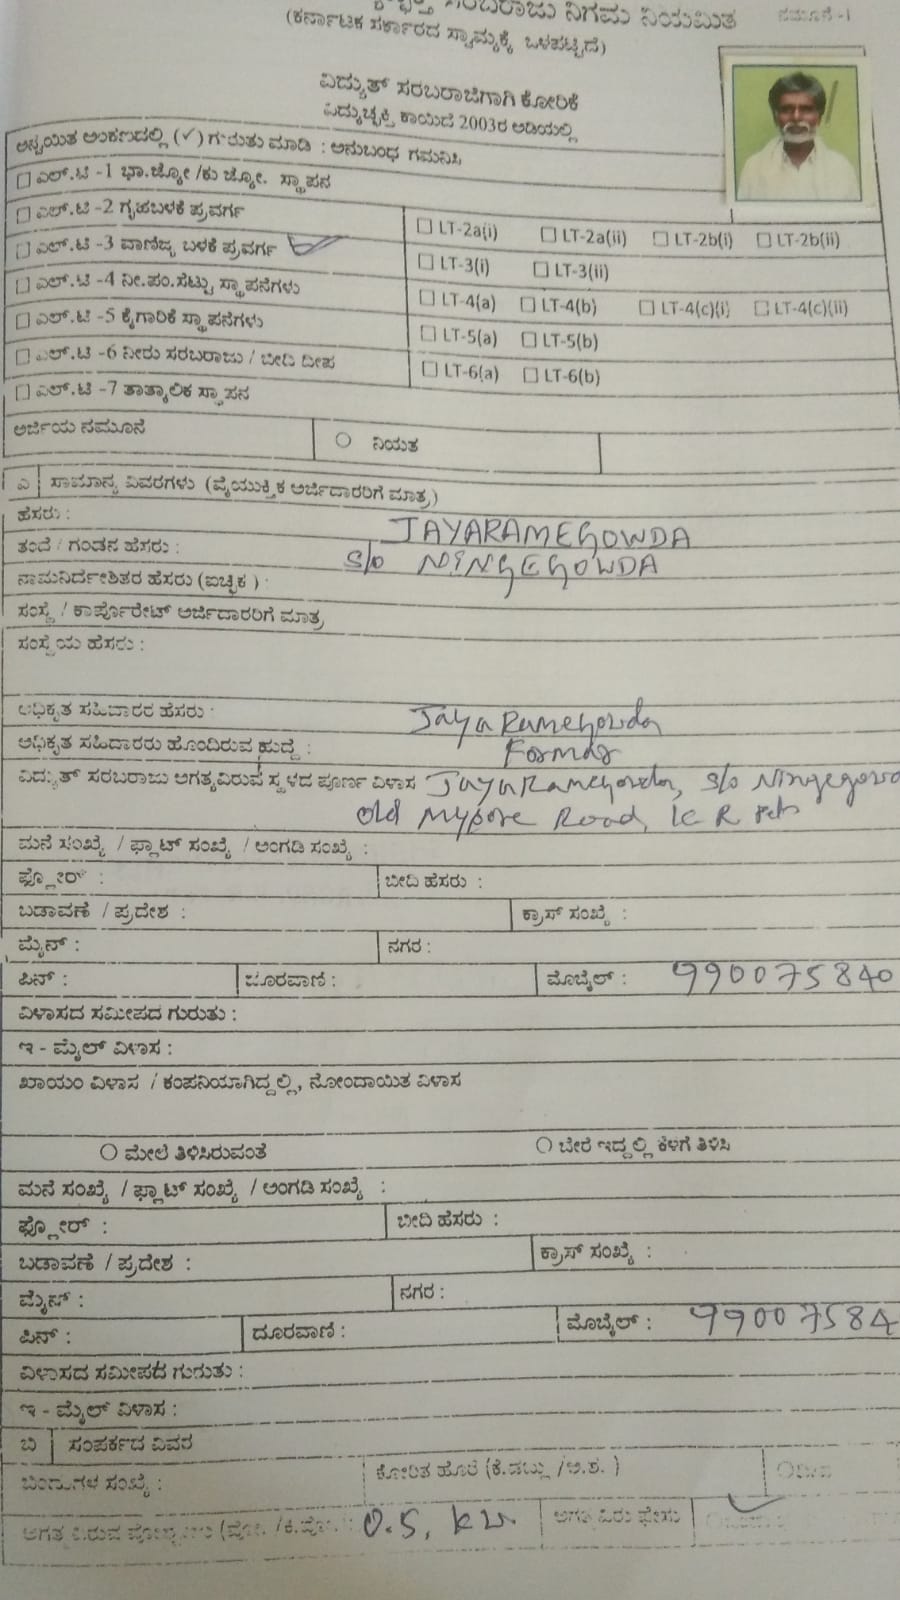 ಸರಬರಾಜು ನಿಗಮ ನಿಯಮಿತ
ನಮೂನೆ -1
(ಕರ್ನಾಟಕ ಸರ್ಕಾರದ ಸ್ವಾಮ್ಯಕ್ಕೆ ಒಳಪಟ್ಟಿದೆ)
ವಿದ್ಯುತ್ ಸರಬರಾಜಿಗಾಗಿ ಕೋರಿಕೆ
ವಿದ್ಯುಚ್ಛಕ್ತಿ ಕಾಯಿದೆ 2003ರ ಅಡಿಯಲ್ಲಿ
ಅನ್ವಯಿತ ಅಂಕಣದಲ್ಲಿ (✓) ಗುರುತು ಮಾಡಿ : ಅನುಬಂಧ ಗಮನಿಸಿ
☐ ಎಲ್.ಟಿ -1 ಭಾ.ಜ್ಯೋ /ಕು ಜ್ಯೋ. ಸ್ಥಾಪನ
☐ ಎಲ್.ಟಿ -2 ಗೃಹಬಳಕೆ ಪ್ರವರ್ಗ ☐ LT-2a(i) ☐ LT-2a(ii) ☐ LT-2b(i) ☐ LT-2b(ii)
☐ ಎಲ್.ಟಿ -3 ವಾಣಿಜ್ಯ ಬಳಕೆ ಪ್ರವರ್ಗ ☐ LT-3(i) ☐ LT-3(ii)
☐ ಎಲ್.ಟಿ -4 ನೀ.ಪಂ.ಸೆಟ್ಟು ಸ್ಥಾಪನೆಗಳು ☐ LT-4(a) ☐ LT-4(b) ☐ LT-4(c)(i) ☐ LT-4(c)(ii)
☐ ಎಲ್.ಟಿ -5 ಕೈಗಾರಿಕೆ ಸ್ಥಾಪನೆಗಳು ☐ LT-5(a) ☐ LT-5(b)
☐ ಎಲ್.ಟಿ -6 ನೀರು ಸರಬರಾಜು / ಬೀದಿ ದೀಪ ☐ LT-6(a) ☐ LT-6(b)
☐ ಎಲ್.ಟಿ -7 ತಾತ್ಕಾಲಿಕ ಸ್ಥಾಪನ
ಅರ್ಜಿಯ ನಮೂನೆ ○ ನಿಯತ
ಎ ಸಾಮಾನ್ಯ ವಿವರಗಳು (ವೈಯುಕ್ತಿಕ ಅರ್ಜಿದಾರರಿಗೆ ಮಾತ್ರ)
ಹೆಸರು : JAYARAMEGOWDA
ತಂದೆ / ಗಂಡನ ಹೆಸರು : S/o NINGEGOWDA
ನಾಮನಿರ್ದೇಶಿತರ ಹೆಸರು (ಐಚ್ಛಿಕ) :
ಸಂಸ್ಥೆ / ಕಾರ್ಪೊರೇಟ್ ಅರ್ಜಿದಾರರಿಗೆ ಮಾತ್ರ
ಸಂಸ್ಥೆಯ ಹೆಸರು :
ಅಧಿಕೃತ ಸಹಿದಾರರ ಹೆಸರು : JayaRamegowda
ಅಧಿಕೃತ ಸಹಿದಾರರು ಹೊಂದಿರುವ ಹುದ್ದೆ : Former
ವಿದ್ಯುತ್ ಸರಬರಾಜು ಅಗತ್ಯವಿರುವ ಸ್ಥಳದ ಪೂರ್ಣ ವಿಳಾಸ JayaRamegowda, S/o Ningegowd
old Mysore Road, K R Pet
ಮನೆ ಸಂಖ್ಯೆ / ಫ್ಲಾಟ್ ಸಂಖ್ಯೆ / ಅಂಗಡಿ ಸಂಖ್ಯೆ :
ಫ್ಲೋರ್ : ಬೀದಿ ಹೆಸರು :
ಬಡಾವಣೆ / ಪ್ರದೇಶ : ಕ್ರಾಸ್ ಸಂಖ್ಯೆ :
ಮೈನ್ : ನಗರ :
ಪಿನ್ : ದೂರವಾಣಿ : ಮೊಬೈಲ್ : 990075840
ವಿಳಾಸದ ಸಮೀಪದ ಗುರುತು :
ಇ - ಮೈಲ್ ವಿಳಾಸ :
ಖಾಯಂ ವಿಳಾಸ / ಕಂಪನಿಯಾಗಿದ್ದಲ್ಲಿ, ನೋಂದಾಯಿತ ವಿಳಾಸ
○ ಮೇಲೆ ತಿಳಿಸಿರುವಂತೆ ○ ಬೇರೆ ಇದ್ದಲ್ಲಿ ಕೆಳಗೆ ತಿಳಿಸಿ
ಮನೆ ಸಂಖ್ಯೆ / ಫ್ಲಾಟ್ ಸಂಖ್ಯೆ / ಅಂಗಡಿ ಸಂಖ್ಯೆ :
ಫ್ಲೋರ್ : ಬೀದಿ ಹೆಸರು :
ಬಡಾವಣೆ / ಪ್ರದೇಶ : ಕ್ರಾಸ್ ಸಂಖ್ಯೆ :
ಮೈನ್ : ನಗರ :
ಪಿನ್ : ದೂರವಾಣಿ : ಮೊಬೈಲ್ : 99007584
ವಿಳಾಸದ ಸಮೀಪದ ಗುರುತು :
ಇ - ಮೈಲ್ ವಿಳಾಸ :
ಬಿ ಸಂಪರ್ಕದ ವಿವರ
ಬಿಂದುಗಳ ಸಂಖ್ಯೆ : ಕೋರಿತ ಹೊರೆ (ಕೆ.ಡಬ್ಲ್ಯು /ಅ.ಶ. )
ಅಗತ್ಯ ವಿರುವ 0.5, KW ಅಗತ್ಯ ವಿರು ಫೇಸು